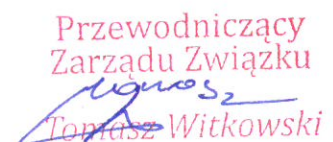 Przewodniczący
Zarządu Związku
Tomasz Witkowski